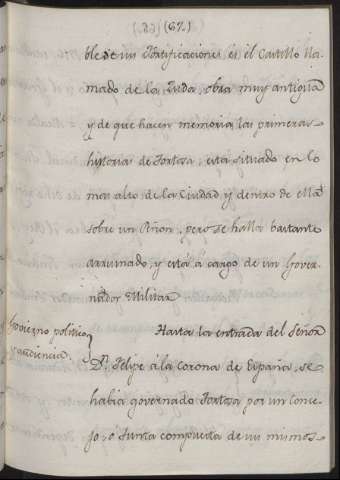 (36.) (67.)
ble de sus Fortificaciones es el Castillo lla-
mado de la Zuda, obra muy antigua
y de que hacen memoria las primeras
historias de Tortosa, està situado en lo
mas alto de la Ciudad y dentro de ella
sobre un Peñon, pero se halla bastante
arruinado, y està à cargo de un Gover-
nador Militar
Govierno politico
y audiencia.
Hasta la entrada del Señor
Dn. Felipe à la Corona de España, se
habia governado Tortosa por un Conse-
jo, ò Junta compuesta de sus mismos